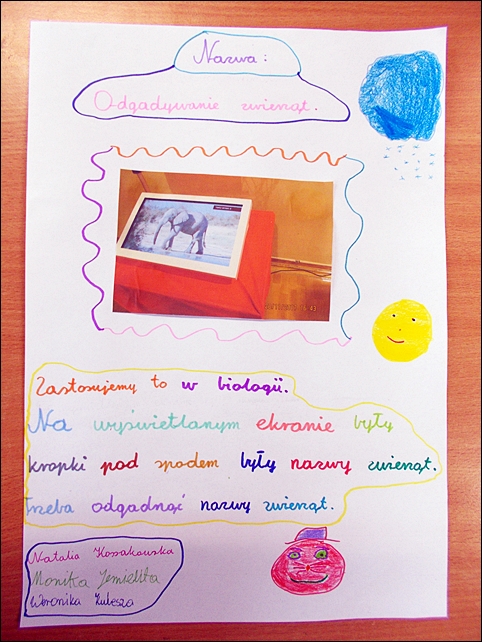 Nazwa:
Odgadywanie zwierząt.
Zastosujemy to w biologii.
Na wyświetlanym ekranie były
kropki pod spodem były nazwy zwierząt.
Trzeba odgadnąć nazwy zwierząt.
Natalia Kossakowska
Monika Jemielita
Weronika Kulesza